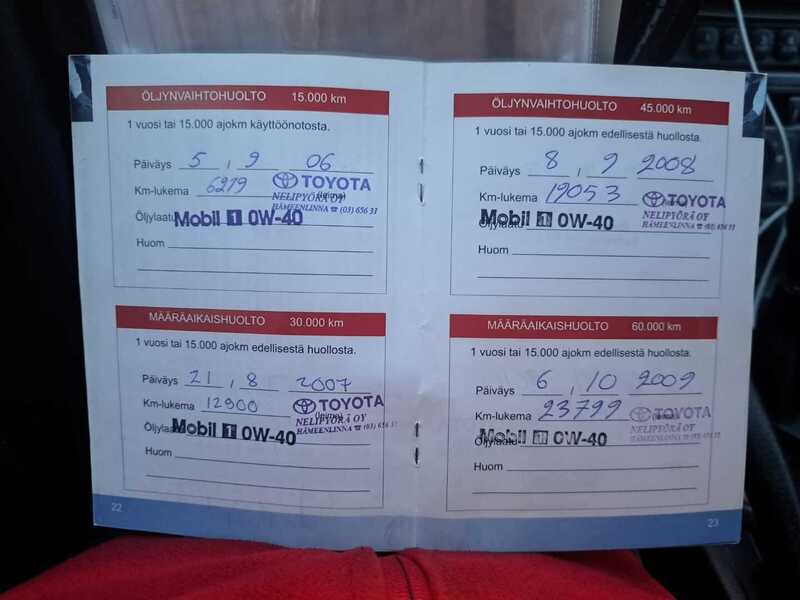 ÖLJYNVAIHTOHUOLTO 15.000 km
1 vuosi tai 15.000 ajokm käyttöönotosta.
Päiväys 5 , 9 06
Km-lukema 6219 TOYOTA
NELIPYÖRÄ OY
HÄMEENLINNA ☎ (03) 656 31
Öljylaatu Mobil 1 0W-40
Huom
MÄÄRÄAIKAISHUOLTO 30.000 km
1 vuosi tai 15.000 ajokm edellisestä huollosta.
Päiväys 21 , 8 2007
Km-lukema 12900 TOYOTA
NELIPYÖRÄ OY
HÄMEENLINNA ☎ (03) 656 31
Öljylaatu Mobil 1 0W-40
Huom
22
ÖLJYNVAIHTOHUOLTO 45.000 km
1 vuosi tai 15.000 ajokm edellisestä huollosta.
Päiväys 8 , 9 2008
Km-lukema 19053 TOYOTA
NELIPYÖRÄ OY
HÄMEENLINNA ☎ (03) 656 31
Öljylaatu Mobil 1 0W-40
Huom
MÄÄRÄAIKAISHUOLTO 60.000 km
1 vuosi tai 15.000 ajokm edellisestä huollosta.
Päiväys 6 , 10 2009
Km-lukema 23799 TOYOTA
NELIPYÖRÄ OY
HÄMEENLINNA ☎ (03) 656 31
Öljylaatu Mobil 1 0W-40
Huom
23